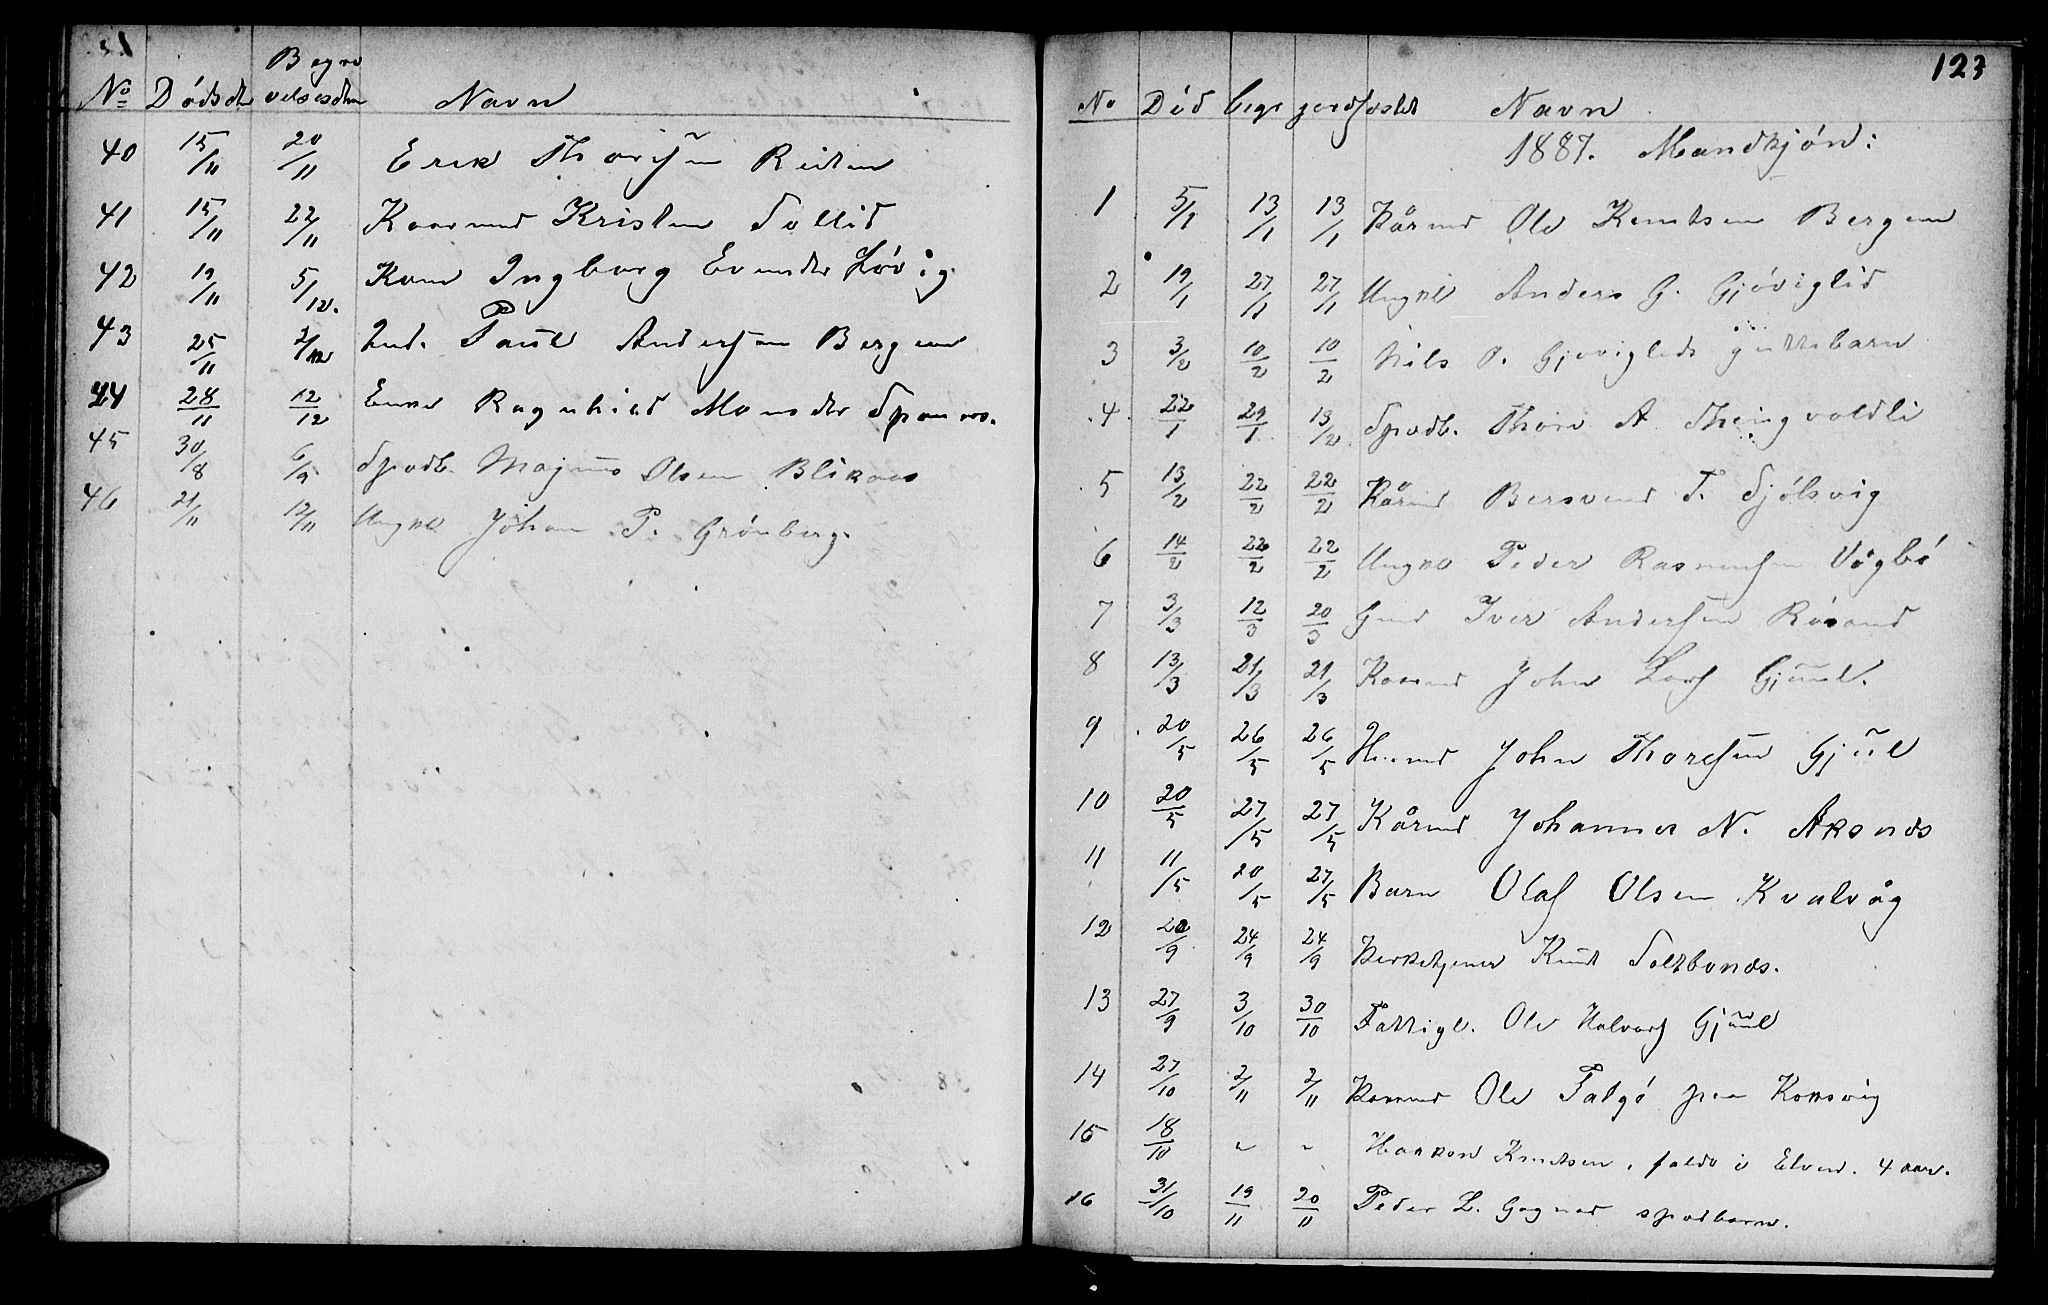 Begra
No Dødsda velsesdan Navn
40 15/11 20/11 Erik Thoresen Reiten
41 15/11 22/11 Kaarmd Kristen Sollid
42 19/11 5/12. Kone Ingborg Evensdr Løvig
43 25/11 2/12 Ind. Paul Andersen Bergem
44 28/11 12/12 Enke Ragnhild Monsdr
45 30/8 6/9 Spædb. Magnus Olsen Blikaas
46 21/11 12/11 Ungkl Johan P. Grønberg.
123
No Død begr jordfæstet Navn
1887. Mandkjøn:
1 5/1 13/1 13/1 Kårmd Ole Knutsen Bergem
2 19/1 27/1 27/1 Ungkl Anders G. Gjøviglid
3 3/2 10/2 10/2 Nils O. Gjøviglids guttebarn
4 22/1 29/1 13/2 Spædb. Thore A. Thingvoldli
5 13/2 22/2 22/2 Kårmd Bersvend T. Sjølsvig
6 14/2 22/2 22/2 Ungkl Peder Rasmusen Vågbø
7 3/3 12/3 20/3 Gmd Iver Andersen Røsand
8 13/3 21/3 21/3 Kaarmd John Lars Gjul.
9 20/5 26/5 26/5 John Thoresen Gjul
10 20/5 27/5 27/5 Kårmd Johannes N. Aksnes
11 11/5 20/5 27/5 Barn Olaf Olsen Kvalvåg
12 20/9 24/9 24/9 Kirketjener Knut Saltbones.
13 27/9 3/10 30/10 Fattigl. Ole Halvors Gjul
14 27/10 2/11 2/11 Kaarmd Ole Talgø paa Korsvig
15 18/10 " " Haakon Knutsen, faldt i Elven. 4 aar.
16 31/10 19/11 20/11 Peder L. Gagnat spædbarn.